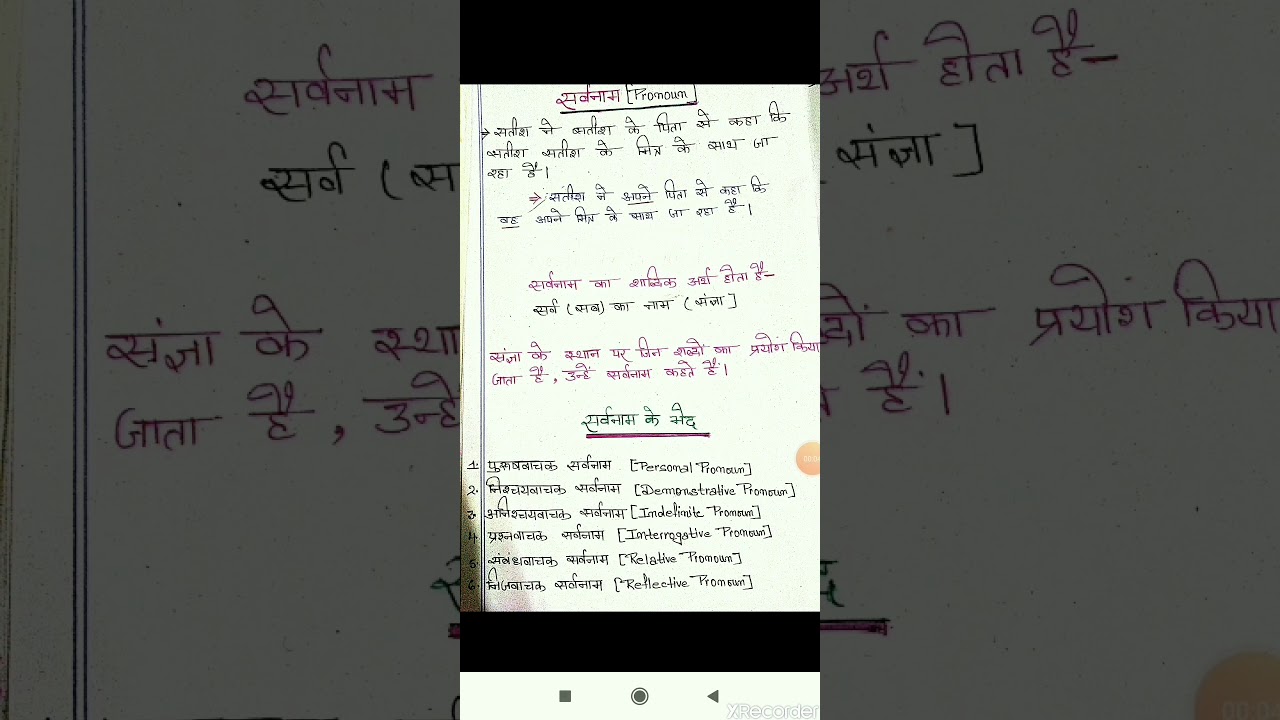 सर्वनाम [Pronoun]
→ सतीश ने सतीश के पिता से कहा कि
सतीश सतीश के मित्र के साथ जा
रहा है।
⇒ सतीश ने अपने पिता से कहा कि
वह अपने मित्र के साथ जा रहा है।
सर्वनाम का शाब्दिक अर्थ होता है-
सर्व (सब) का नाम (संज्ञा]
संज्ञा के स्थान पर जिन शब्दों का प्रयोग किया
जाता है, उन्हें सर्वनाम कहते हैं।
सर्वनाम के भेद
1. पुरूषवाचक सर्वनाम [Personal Pronoun]
2. निश्चयवाचक सर्वनाम [Demonstrative Pronoun]
3. अनिश्चयवाचक सर्वनाम [Indefinite Pronoun]
4. प्रश्नवाचक सर्वनाम [Interrogative Pronoun]
5. संबंधवाचक सर्वनाम [Relative Pronoun]
6. निजवाचक सर्वनाम [Reflective Pronoun]
XRecorder
सर्वनाम अर्थ होता है-
सर्व (स संज्ञा]
संज्ञा के का प्रयोग किया
जाता है, उन्हे हैं।